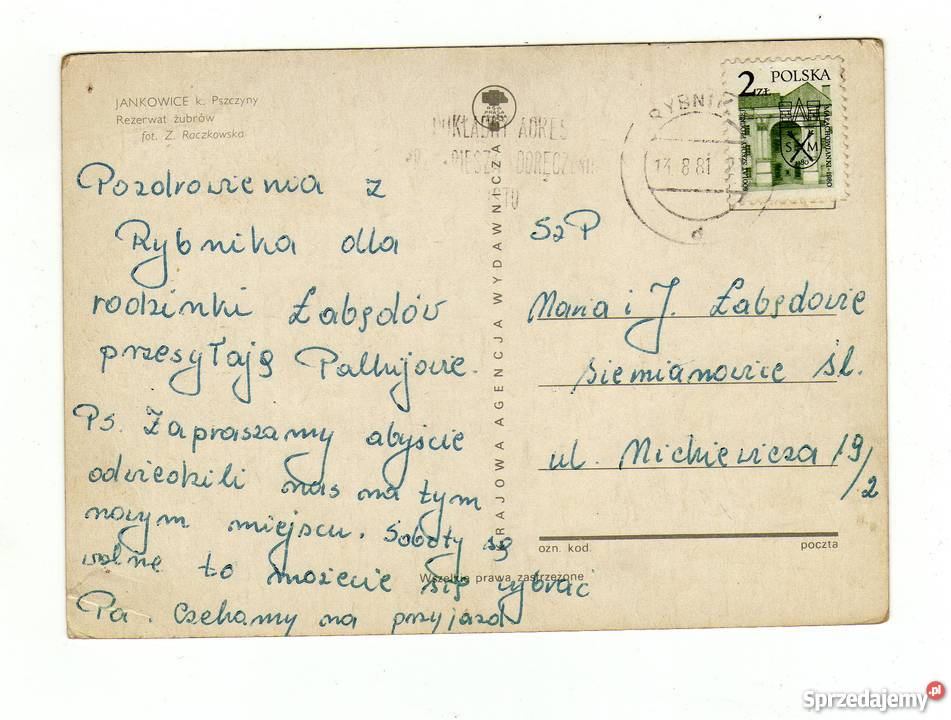 JANKOWICE k. Pszczyny
Rezerwat żubrów
fot. Z. Raczkowska
Pozdrowienia z
Rybnika dla
rodzinki Łabędów
przesyłają
Ps. Zapraszamy abyście
odwiedzili nas na tym
nowym miejscu. Soboty są
wolne to możecie się wybrać
Pa. Czekamy na przyjazd
KRAJOWA AGENCJA WYDAWNICZA
Wszelkie prawa zastrzeżone
DOKŁADNY ADRES
DORĘCZENIE
RYBNIK
13.8.81
2 ZŁ POLSKA
S M
1980
SzP
Maria i J. Łabędowie
Siemianowice śl.
ul. Mickiewicza 19/2
ozn. kod.
poczta
Sprzedajemy.pl